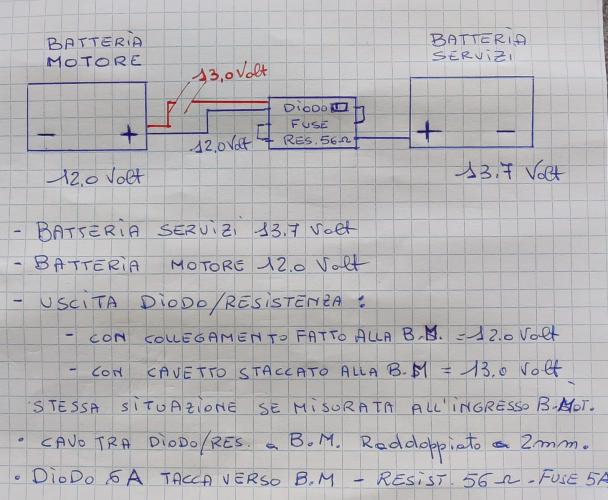 BATTERIA
MOTORE
BATTERIA
SERVIZI
13,0 Volt
DIODO
FUSE
RES. 56Ω
- +
+ -
12,0 Volt
12,0 Volt
13.7 Volt
- BATTERIA SERVIZI 13.7 Volt
- BATTERIA MOTORE 12.0 Volt
- USCITA DIODO/RESISTENZA :
- CON COLLEGAMENTO FATTO ALLA B.M. = 12.0 Volt
- CON CAVETTO STACCATO ALLA B.M = 13,0 Volt
STESSA SITUAZIONE SE MISURATA ALL'INGRESSO B.MOT.
• CAVO TRA DIODO/RES. e B.M. Raddoppiato a 2mm.
• DIODO 6A TACCA VERSO B.M - RESIST. 56 Ω - FUSE 5A